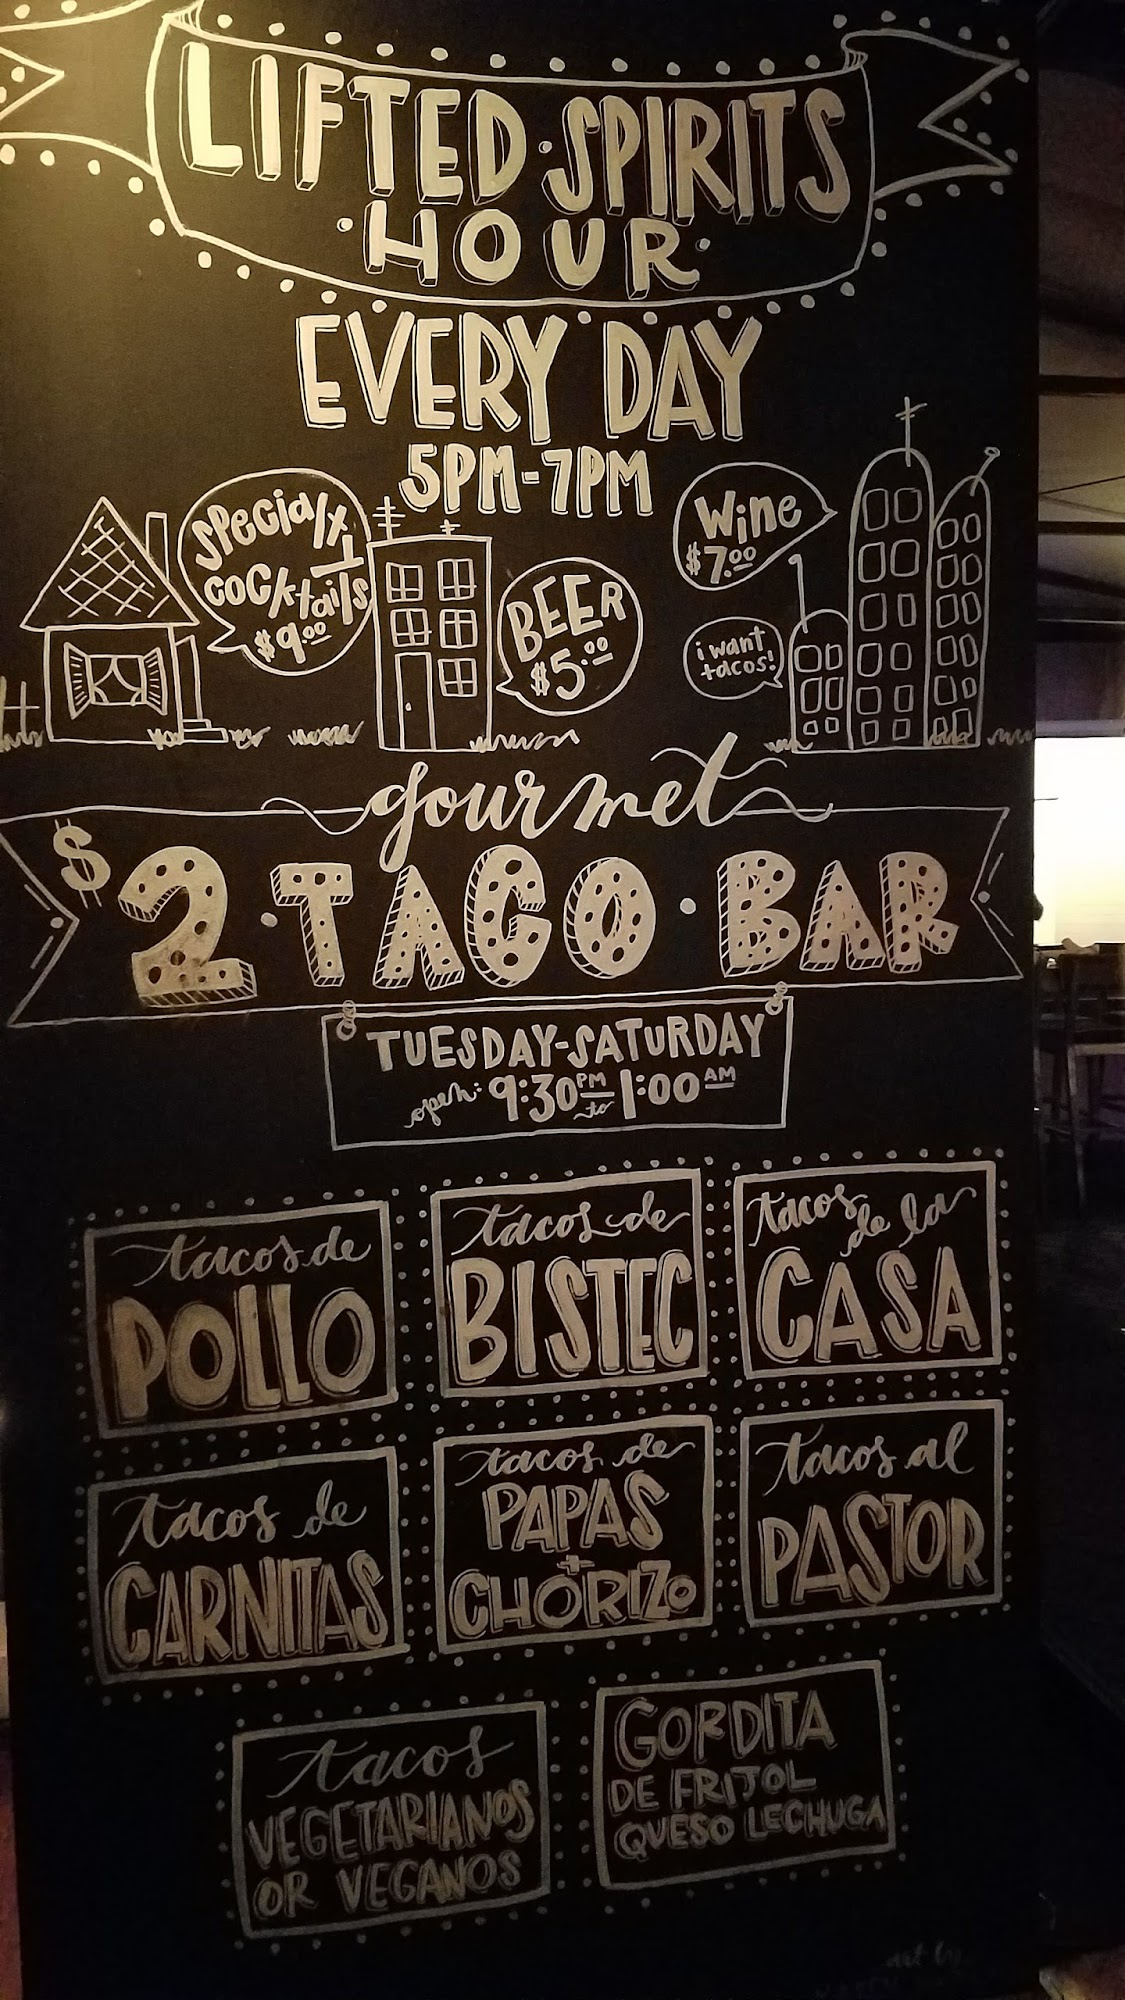 LIFTED · SPIRITS
· HOUR ·
EVERY DAY
5PM-7PM
Specialty
Cocktails
$9.00
BEER
$5.00
Wine
$7.00
i want
tacos!
gourmet
$2 · TACO · BAR
TUESDAY-SATURDAY
open: 9:30PM to 1:00AM
tacos de
POLLO
tacos de
BISTEC
tacos
de la
CASA
tacos de
CARNITAS
tacos de
PAPAS
+
CHORIZO
tacos al
PASTOR
tacos
VEGETARIANOS
OR VEGANOS
GORDITA
DE FRIJOL
QUESO LECHUGA
art by